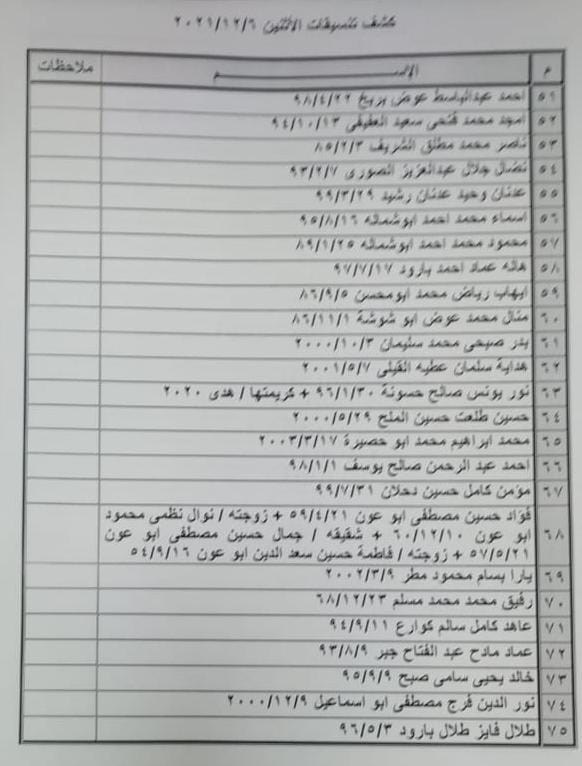 كشف تنسيقات الاثنين ٢٠٢١/١٢/٦
م الإســـــم ملاحظات
٥١ احمد عبدالباسط عوض بريخ ٩٨/٤/٢٢
٥٢ امجد محمد فتحى سعيد العفيفى ٩٤/١٠/١٣
٥٣ ناصر محمد مطلق الشريف ٨٥/٢/٣
٥٤ نضال جلال عبدالعزيز الصورى ٩٣/٢/٧
٥٥ عدنان وحيد عدنان رشيد ٩٩/٣/٢٩
٥٦ اسماء محمد احمد ابوشماله ٩٥/٨/١٦
٥٧ محمود محمد احمد ابوشماله ٨٩/١/٢٥
٥٨ هاله عماد احمد بارود ٩٧/٧/١٧
٥٩ ايهاب رياض محمد ابومحسن ٨٦/٩/٥
٦٠ منال محمد عوض ابو شوشة ٨٦/١١/١
٦١ بدر صبحى محمد سليمان ٢٠٠٠/١٠/٣
٦٢ هداية سلمان عطيه القيلى ٢٠٠١/٥/٧
٦٣ نور يونس صالح حسونة ٩٦/١/٣٠ + كريمتها / هدى ٢٠٢٠
٦٤ حسين طلعت حسين الملح ٢٠٠٠/٥/٢٩
٦٥ محمد ابراهيم محمد ابو حصيرة ٢٠٠٣/٣/١٧
٦٦ احمد عبد الرحمن صالح يوسف ٩٨/١/١
٦٧ مؤمن كامل حسين دحلان ٩٩/٧/٣١
٦٨ فؤاد حسين مصطفى ابو عون ٥٩/٤/٢١ + زوجته / نوال نظمى محمود
ابو عون ٦٠/١٢/١٠ + شقيقه / جمال حسين مصطفى ابو عون
٥٧/٥/٢١ + زوجته / فاطمة حسين سعد الدين ابو عون ٥٤/٩/١٦
٦٩ يارا بسام محمود مطر ٢٠٠٢/٣/٩
٧٠ رفيق محمد محمد مسلم ٦٨/١٢/٢٣
٧١ عاهد كامل سالم كوارع ٩٤/٩/١١
٧٢ عماد مادح عبد الفتاح جبر ٩٣/٨/٩
٧٣ خالد يحيى سامى صبح ٩٥/٩/٩
٧٤ نور الدين فرج مصطفى ابو اسماعيل ٢٠٠٠/١٢/٩
٧٥ طلال فايز طلال بارود ٩٦/٥/٣